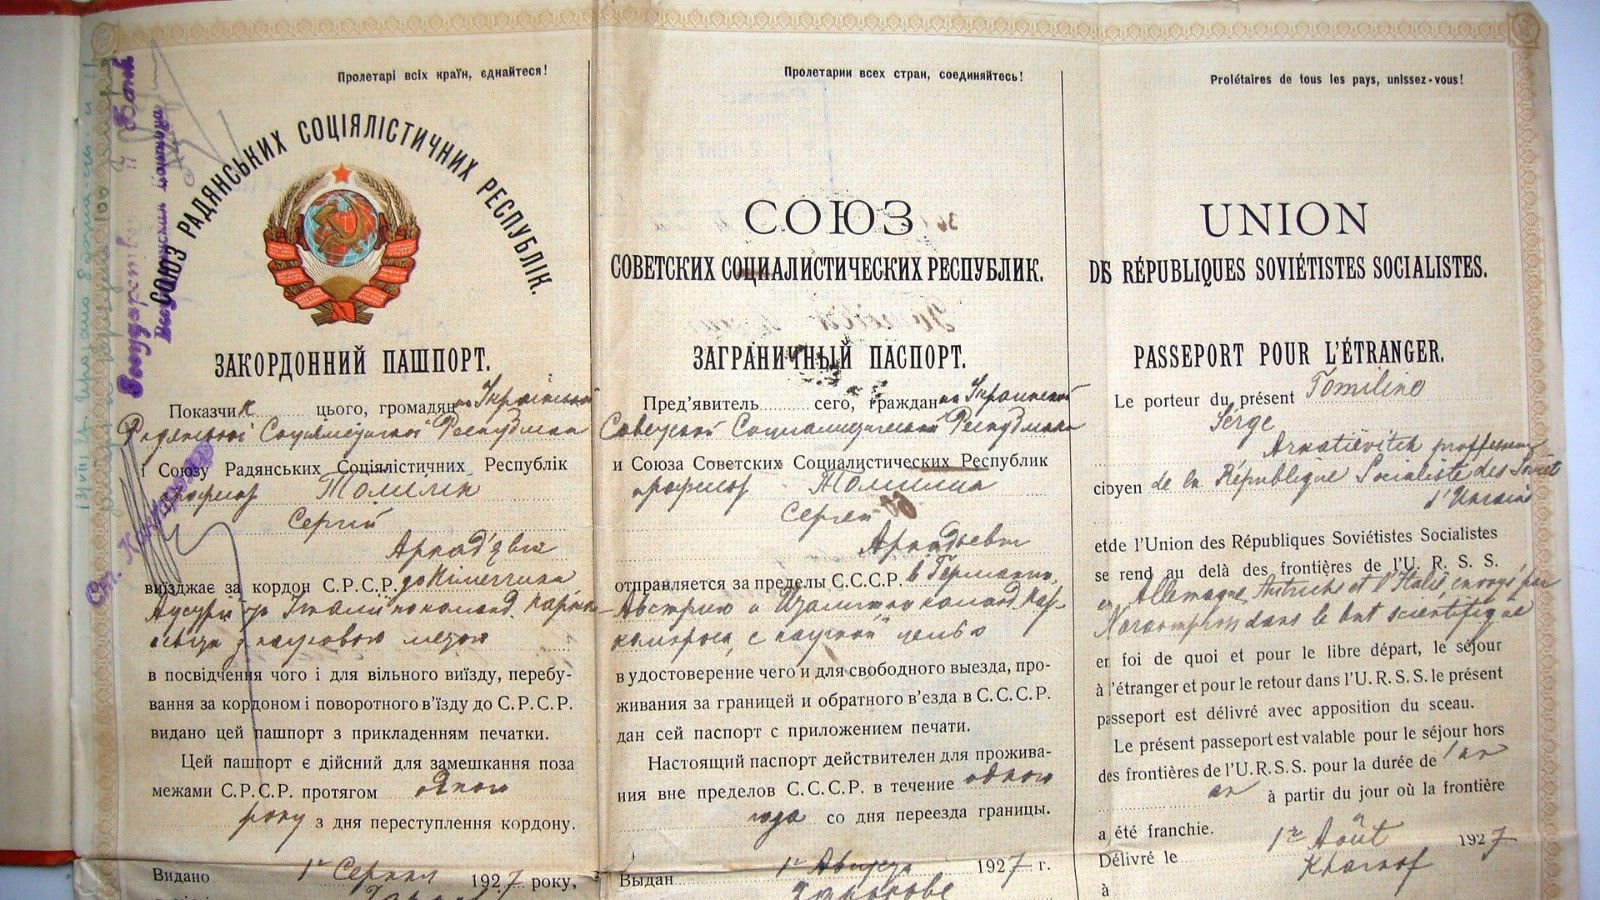 Пролетарі всіх країн, єднайтеся!
СОЮЗ РАДЯНСЬКИХ СОЦІЯЛІСТИЧНИХ РЕСПУБЛІК.
ЗАКОРДОННИЙ ПАШПОРТ.
Показчик цього, громадян Української
Радянської Соціялістичної Республіки
і Союзу Радянських Соціялістичних Республік
професор Томилін
Сергій
Аркад'євич
виїзджає за кордон С.Р.С.Р. до Німеччини
з науковою метою
в посвідчення чого і для вільного виїзду, перебу-
вання за кордоном і поворотного в'їзду до С.Р.С.Р.
видано цей пашпорт з прикладенням печатки.
Цей пашпорт є дійсний для замешкання поза
межами С.Р.С.Р. протягом одного
року з дня переступлення кордону.
Видано 1го Серпня 1927 року,
Пролетарии всех стран, соединяйтесь!
СОЮЗ
СОВЕТСКИХ СОЦИАЛИСТИЧЕСКИХ РЕСПУБЛИК.
ЗАГРАНИЧНЫЙ ПАСПОРТ.
Пред'явитель сего, гражданин Украинской
Советской Социалистической Республики
и Союза Советских Социалистических Республик
профессор Томилин
Сергей
Аркадьевич
отправляется за пределы С.С.С.Р. в Германию,
Австрию и Италию по команд. Нар-
компроса, с научной целью
в удостоверение чего и для свободного выезда, про-
живания за границей и обратного в'езда в С.С.С.Р.
дан сей паспорт с приложением печати.
Настоящий паспорт действителен для прожива-
ния вне пределов С.С.С.Р. в течение одного
года со дня переезда границы.
Выдан 1го Августа 1927 г.
Харькове
Prolétaires de tous les pays, unissez-vous!
UNION
DS RÉPUBLIQUES SOVIÉTISTES SOCIALISTES.
PASSEPORT POUR L'ÉTRANGER.
Le porteur du présent Tomiline
Serge
Arkadiévitch professeur
citoyen de la République Socialiste des Soviet
d'Ukraine
et de l'Union des Républiques Soviétistes Socialistes
se rend au delà des frontières de l'U. R. S. S.
en Allemagne, Autriche et l'Italie, envoyé par
Narcompros dans le but scientifique
en foi de quoi et pour le libre départ, le séjour
à l'étranger et pour le retour dans l'U. R. S. S. le présent
passeport est délivré avec apposition du sceau.
Le présent passeport est valable pour le séjour hors
des frontières de l'U.R.S.S. pour la durée de 1 an
an à partir du jour où la frontière
a été franchie.
Délivré le 1er Août 1927
à Kharkof